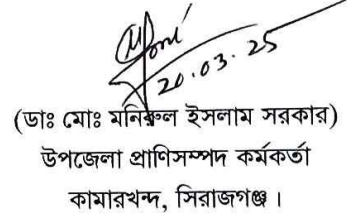 20.03.25
(ডাঃ মোঃ মনিরুল ইসলাম সরকার)
উপজেলা প্রাণিসম্পদ কর্মকর্তা
কামারখন্দ, সিরাজগঞ্জ।